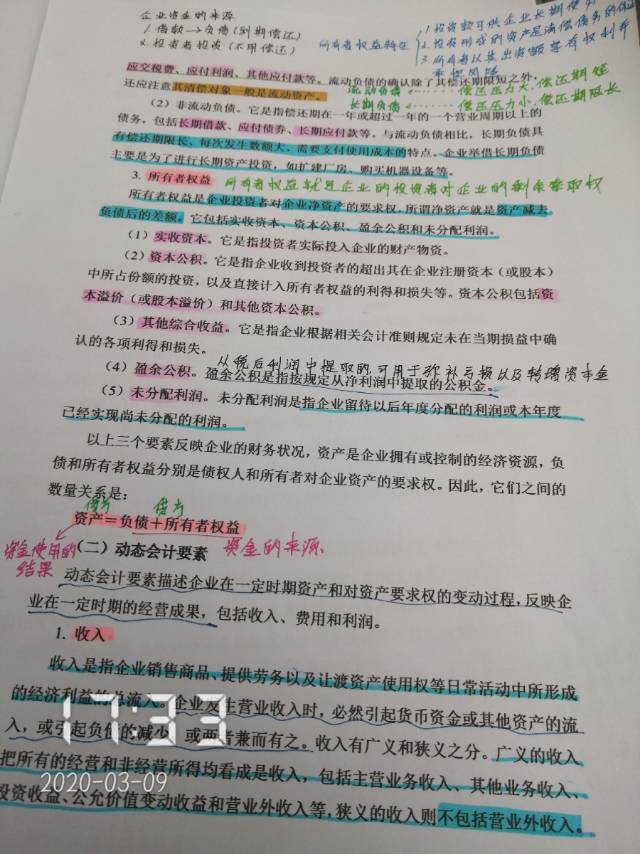 企业资金的来源
1. 借款→负债(到期偿还)
2. 投资者投资(不用偿还)
所有者权益特征
1.投资额可供企业长期使用
2.投资形成的资产是清偿债务的保
3.所有者以其出资额享有权利并
应交税费、应付利润、其他应付款等。流动负债的确认除了其偿还期限短之外，
还应注意其清偿对象一般是流动资产。
流动负债 偿还压力大，偿还期短
长期负债 偿还压力小，偿还期限长
（2）非流动负债。它是指偿还期在一年或超过一年的一个营业周期以上的
债务，包括长期借款、应付债券、长期应付款等。与流动负债相比，长期负债具
有偿还期限长、每次发生数额大、需要支付使用成本的特点。企业举借长期负债
主要是为了进行长期资产投资，如扩建厂房、购买机器设备等。
3. 所有者权益 所有者权益就是企业的投资者对企业的剩余索取权
所有者权益是企业投资者对企业净资产的要求权，所谓净资产就是资产减去
负债后的差额。它包括实收资本、资本公积、盈余公积和未分配利润。
（1）实收资本。它是指投资者实际投入企业的财产物资。
（2）资本公积。它是指企业收到投资者的超出其在企业注册资本（或股本）
中所占份额的投资，以及直接计入所有者权益的利得和损失等。资本公积包括资
本溢价（或股本溢价）和其他资本公积。
（3）其他综合收益。它是指企业根据相关会计准则规定未在当期损益中确
认的各项利得和损失。
从税后利润中提取的，可用于弥补亏损以及转增资本金
（4）盈余公积。盈余公积是指按规定从净利润中提取的公积金。
（5）未分配利润。未分配利润是指企业留待以后年度分配的利润或本年度
已经实现尚未分配的利润。
以上三个要素反映企业的财务状况，资产是企业拥有或控制的经济资源，负
债和所有者权益分别是债权人和所有者对企业资产的要求权。因此，它们之间的
数量关系是：
资产＝负债＋所有者权益
资金使用的
结果
（二）动态会计要素 资金的来源
动态会计要素描述企业在一定时期资产和对资产要求权的变动过程，反映企
业在一定时期的经营成果，包括收入、费用和利润。
1. 收入
收入是指企业销售商品、提供劳务以及让渡资产使用权等日常活动中所形成
的经济利益的总流入。企业发生营业收入时，必然引起货币资金或其他资产的流
入，或引起负债的减少，或两者兼而有之。收入有广义和狭义之分。广义的收入
把所有的经营和非经营所得均看成是收入，包括主营业务收入、其他业务收入、
投资收益、公允价值变动收益和营业外收入等，狭义的收入则不包括营业外收入。
17:33
2020-03-09